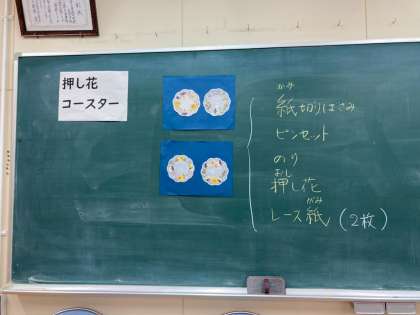 押し花
コースター
かみ
紙切りはさみ
ピンセット
のり
おし
押し花
がみ
レース紙(2枚)